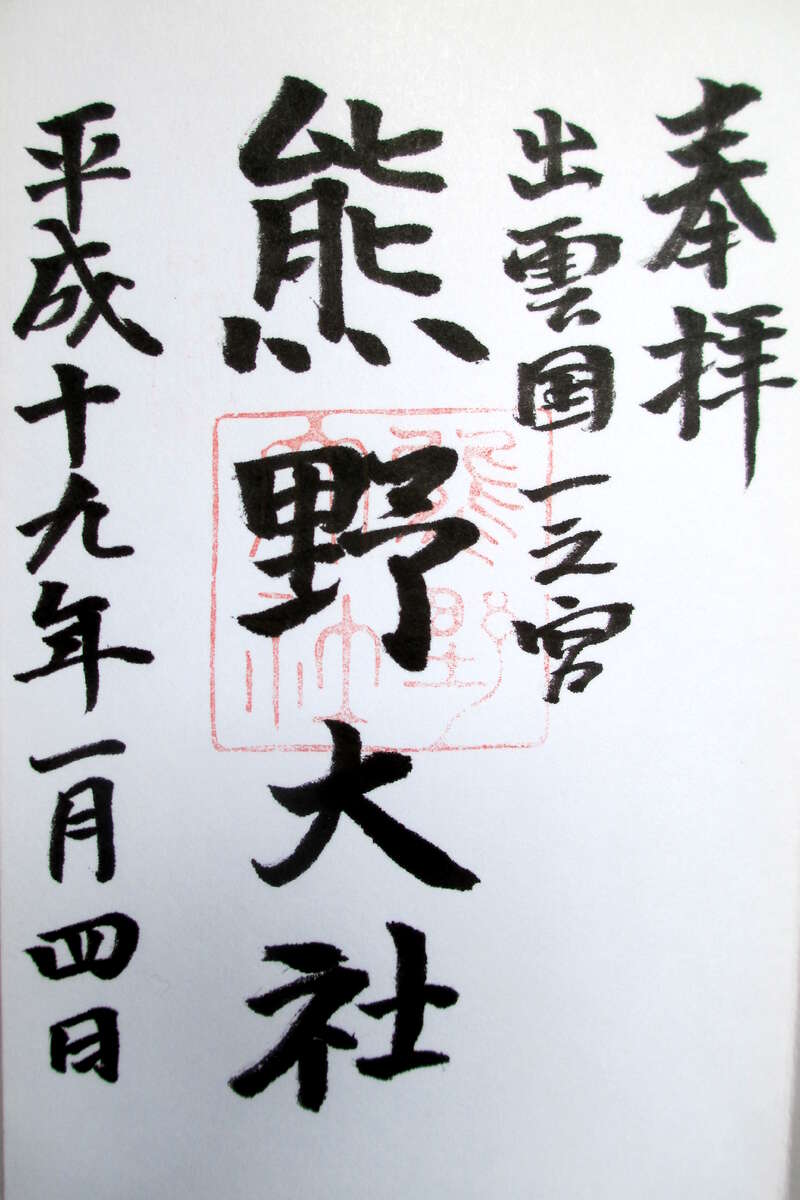 奉拝
出雲国一之宮
熊野大社
平成十九年一月四日
熊野
大社